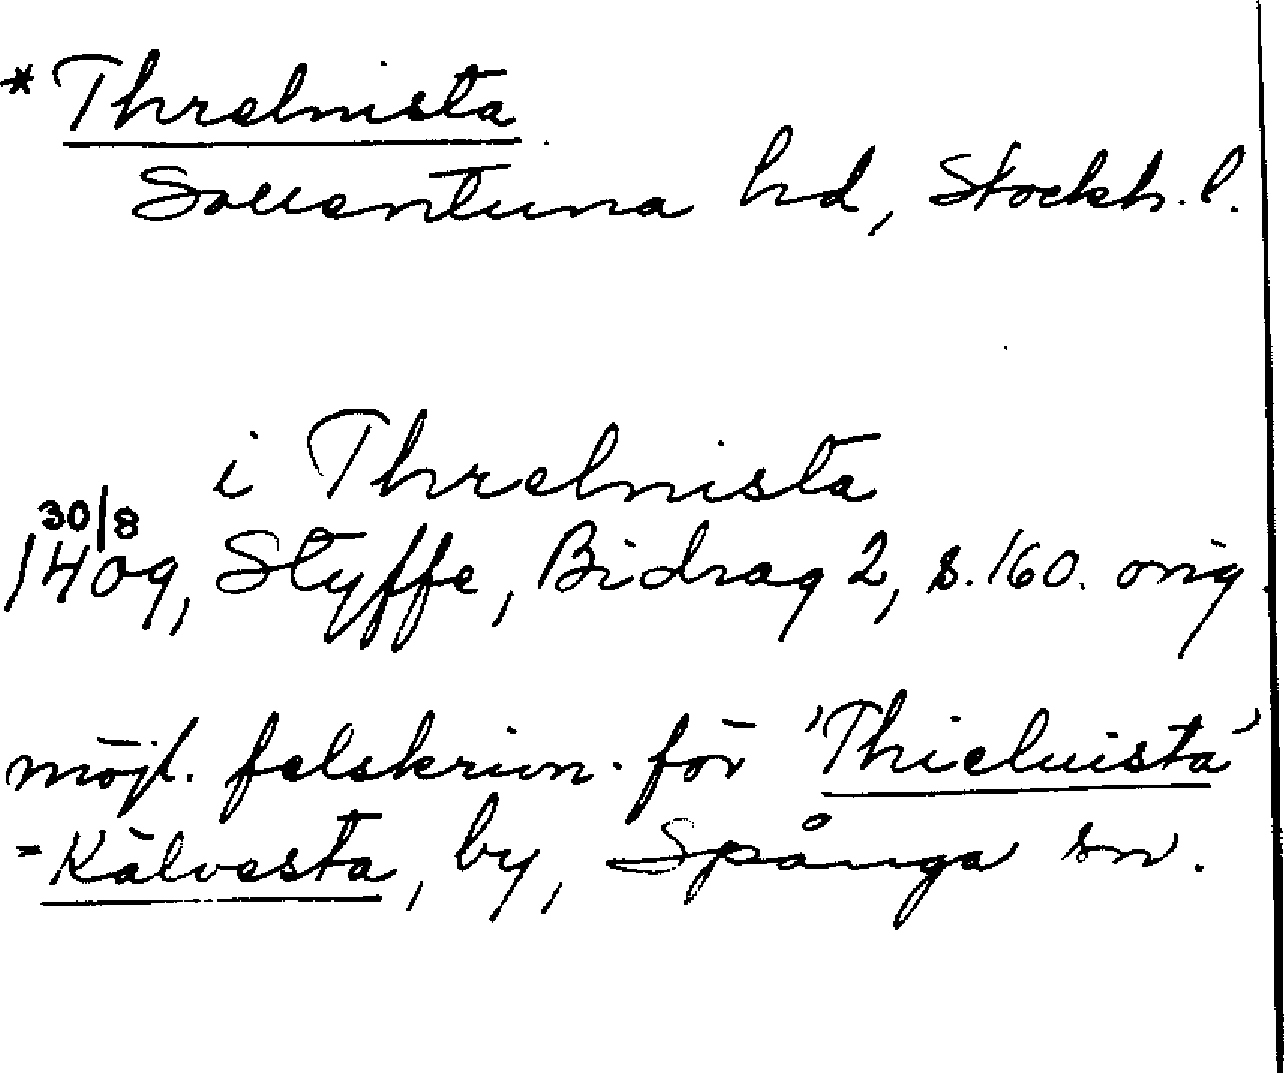 * Threlnista
Sollentuna hd, Stockh. l.
i Threlnista
30/8
1409, Styffe, Bidrag 2, s. 160. orig.
möjl. felskrivn. för 'Thieluista'
- Kälvesta, by, Spånga sn.